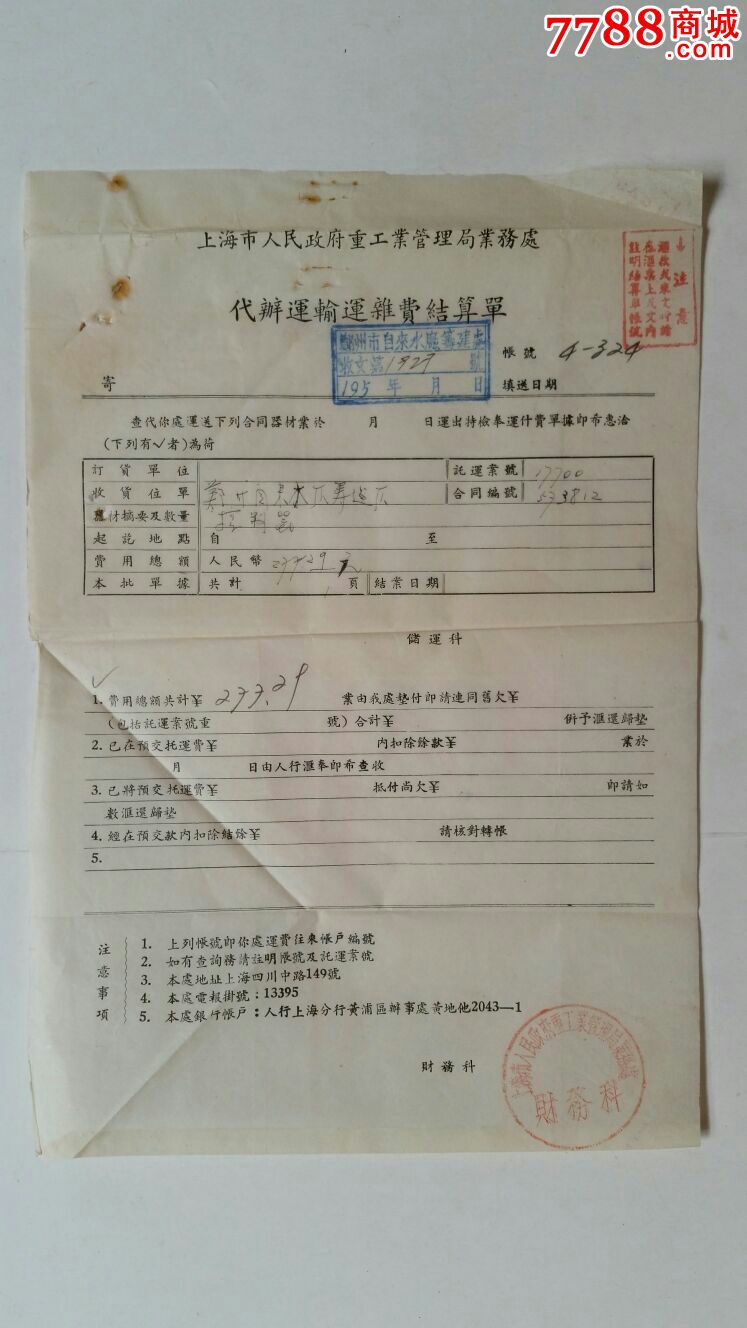 7788商城
.com
上海市人民政府重工業管理局業務處
注意
代辦運輸運雜費結算單
鄭州市自來水廠籌建處
收文第1929號
195 年 月 日
帳號 4-324
寄
填送日期
查代你處運送下列合同器材業於 月 日運出持檢奉運什費單據即布惠洽
(下列有√者)為荷
訂貨單位 託運業號 17700
收貨位單 合同編號 533812
器材摘要及數量
起訖地點 自 至
費用總額 人民幣 元
本批單據 共計 1 頁 結業日期
儲運科
√
1. 費用總額共計¥ 233.29 業由我處墊付即請連同舊欠¥
(包括託運業號重 號)合計¥ 併予滙還歸墊
2. 已在預交托運費¥ 內扣除餘款¥ 業於
月 日由人行滙奉即布查收
3. 已將預交托運費¥ 抵付尚欠¥ 即請如
數滙還歸墊
4. 經在預交款內扣除結餘¥ 請核對轉帳
5.
注意事項
1. 上列帳號即你處運費往來帳戶編號
2. 如有查詢務請註明帳號及託運業號
3. 本處地址上海四川中路149號
4. 本處電報掛號：13395
5. 本處銀行帳戶：人行上海分行黃浦區辦事處黃地他2043—1
財務科
上海市人民政府重工業管理局業務處
財務科